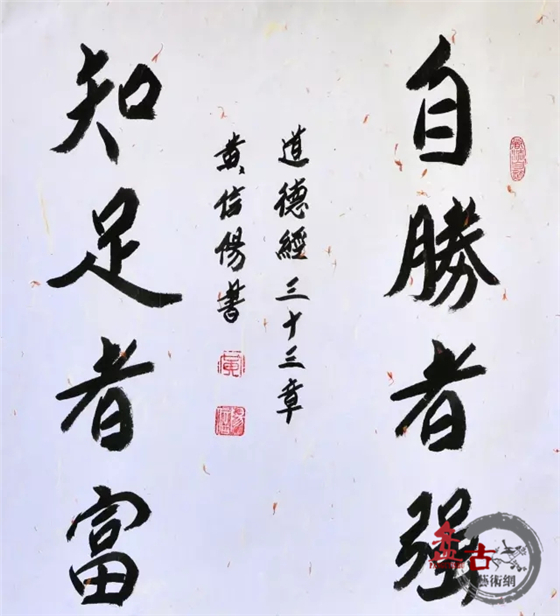 自勝者强
道德經三十三章
黄信陽書
知足者富
盘古
藝術網